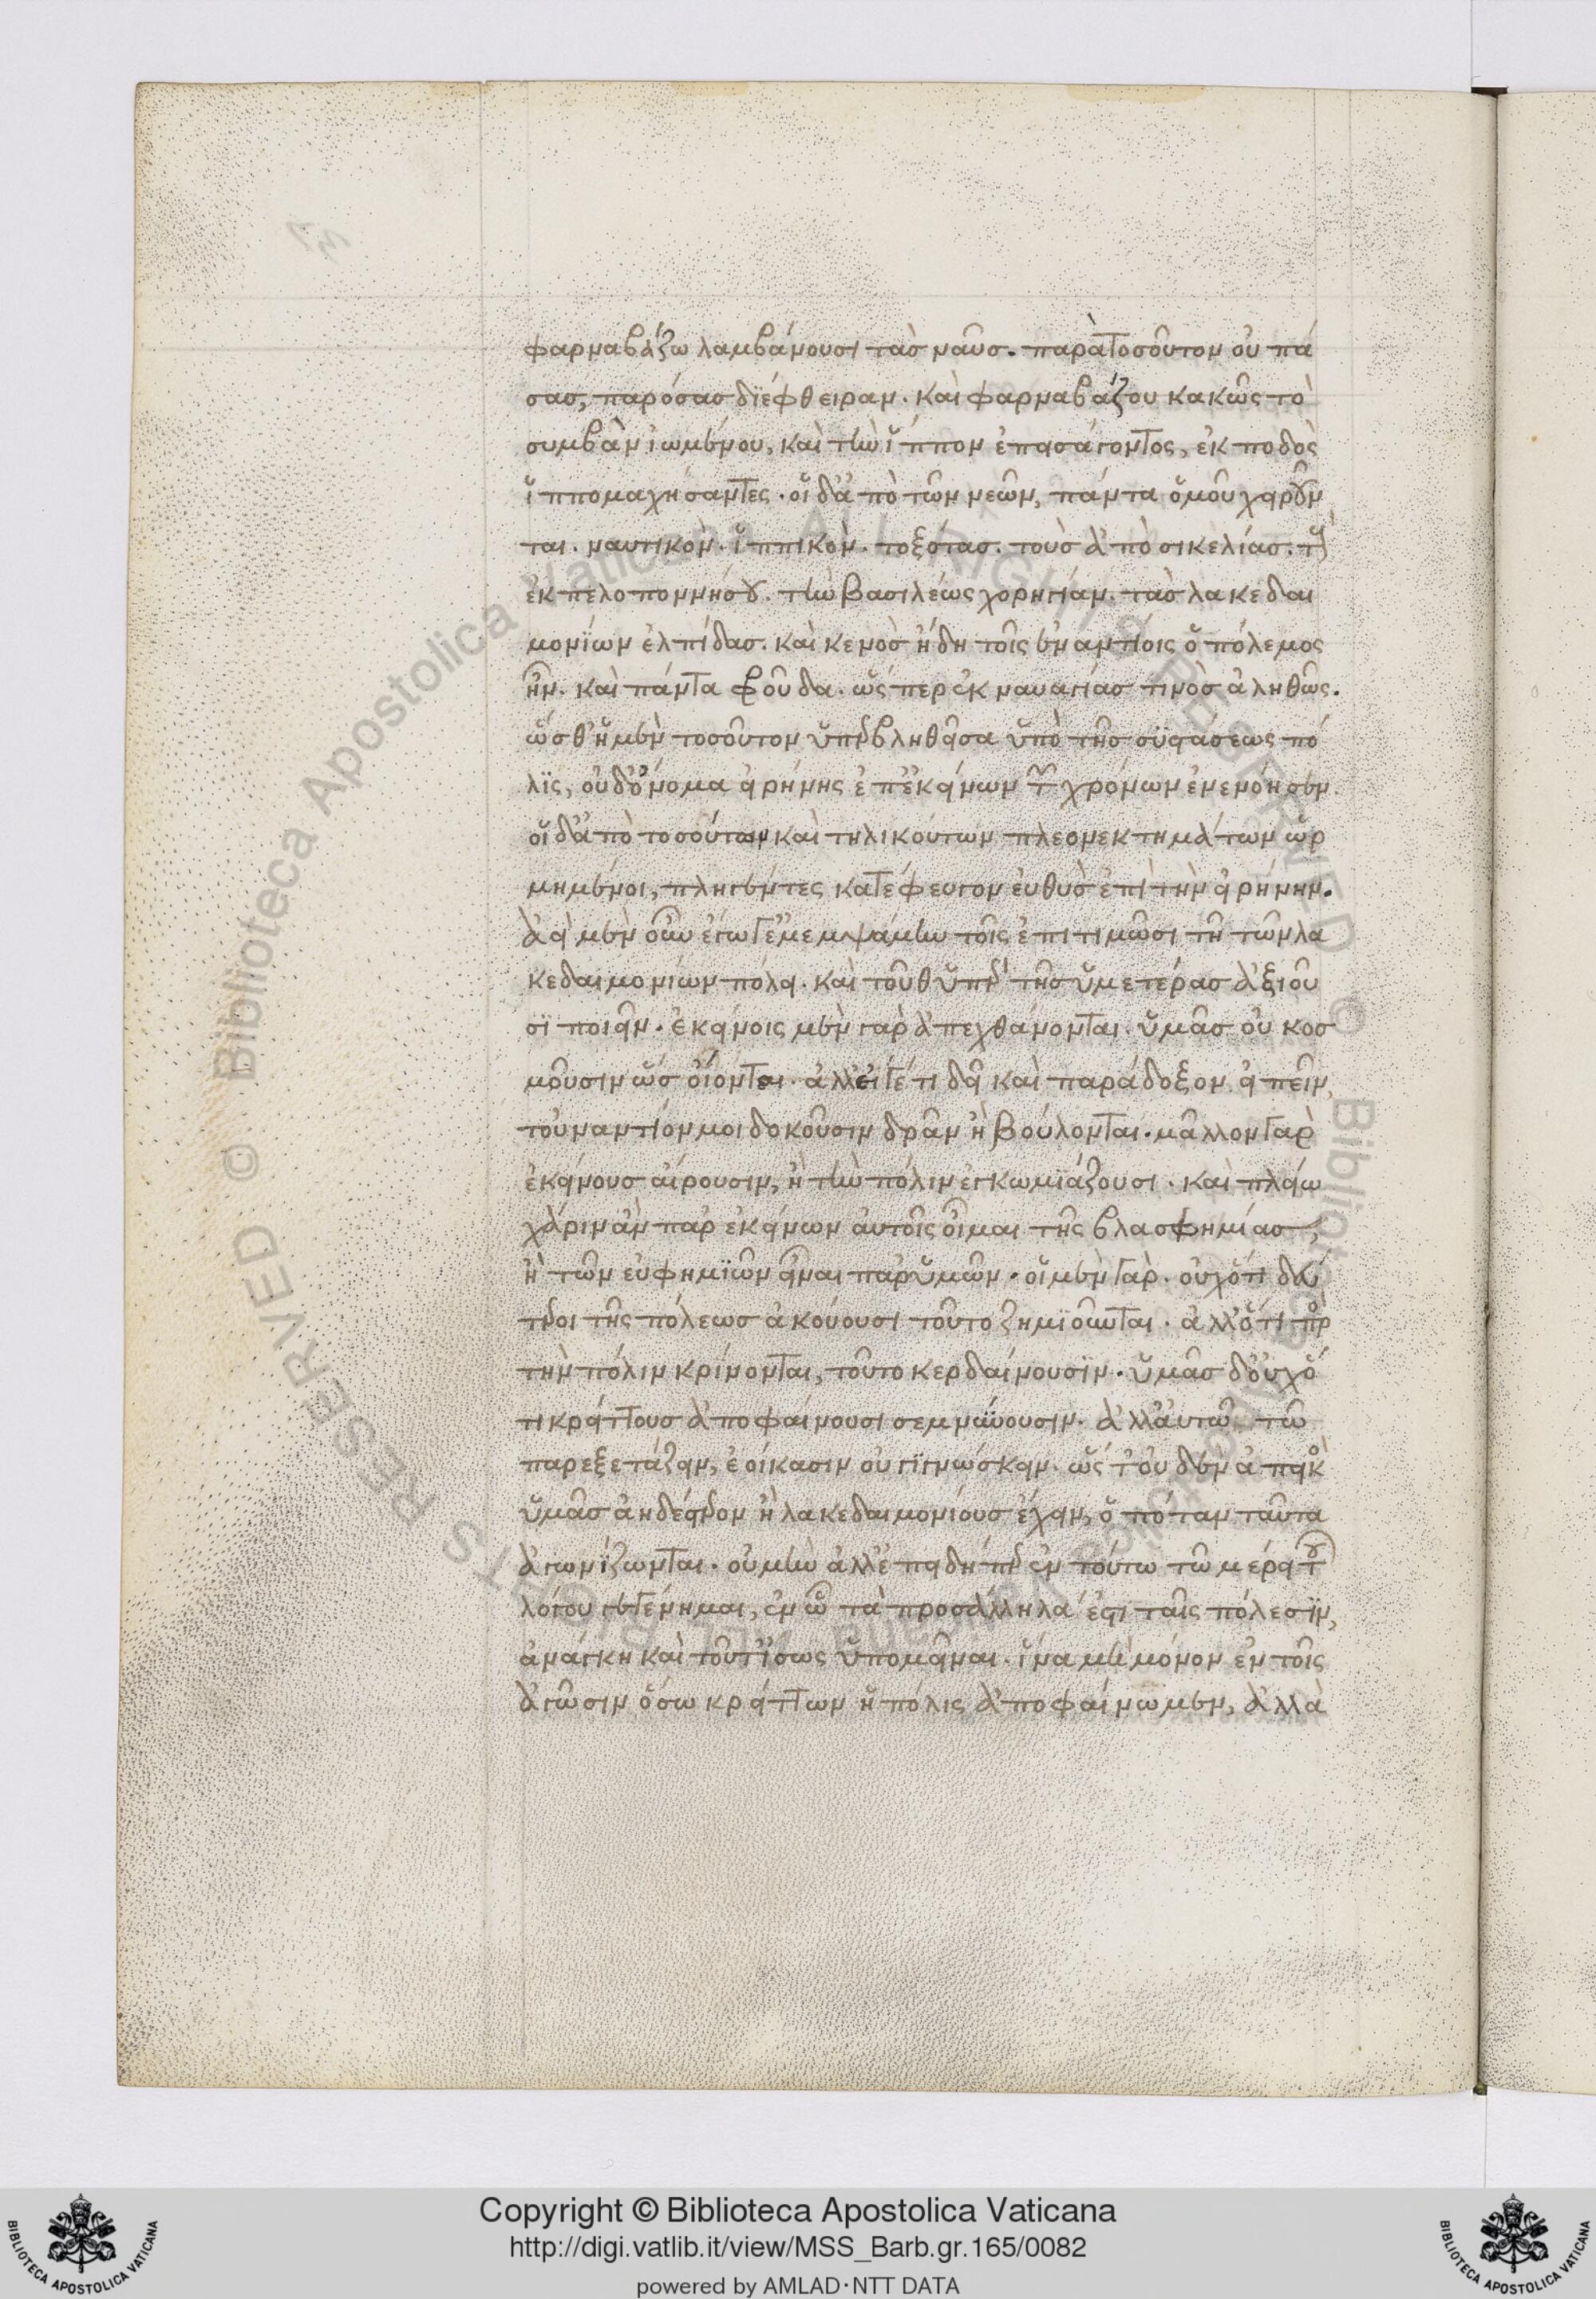 φαρναβάζω λαμβάνουσι τὰς ναῦς. παρὰ τοσοῦτον οὐ πά
σας, παρόσας διέφθειραν. καὶ φαρναβάζου κακῶς τὸ
συμβὰν ἰωμένου, καὶ τὴν ἵππον ἐπεισάγοντος, ἐκ ποδὸς
ἱππομαχήσαντες. οἱ δ' ἀπὸ τῶν νεῶν, πάντα ὁμοῦ χειροῦν
ται. ναυτικὸν. ἱππικὸν. τοξότας. τοὺς ἀπὸ σικελίας. τοὺς
ἐκ πελοποννήσου. τὴν βασιλέως χορηγίαν. τὰς λακεδαι
μονίων ἐλπίδας. καὶ κενὸς ἤδη τοῖς ἐναντίοις ὁ πόλεμος
ἦν. καὶ πάντα φροῦδα. ὥσπερ ἐκ ναυαγίας τινὸς ἀληθῶς.
ὥσθ' ἡ μὲν τοσοῦτον ὑπερβληθεῖσα ὑπὸ τῆς συστάσεως πό
λις, οὐδ' ὄνομα εἰρήνης ἐπ' ἐκείνων τῶν χρόνων ἐνενόησεν
οἱ δ' ἀπὸ τοσούτων καὶ τηλικούτων πλεονεκτημάτων ὡρ
μημένοι, πληγέντες κατέφευγον εὐθὺς ἐπὶ τὴν εἰρήνην.
ἀεὶ μὲν οὖν ἔγωγε ἐμεμψάμην τοῖς ἐπιτιμῶσι τῇ τῶν λα
κεδαιμονίων πόλει. καὶ τοῦθ' ὑπὲρ τῆς ὑμετέρας ἀξιοῦ
σι ποιεῖν. ἐκείνοις μὲν γὰρ ἀπεχθάνονται. ὑμᾶς οὐ κοσ
μοῦσιν ὡς οἴονται. ἀλλ' εἴ γέ τι δεῖ καὶ παράδοξον εἰπεῖν,
τοὐναντίον μοι δοκοῦσιν δρᾶν ἢ βούλονται. μᾶλλον γὰρ
ἐκείνους αἴρουσιν, ἢ τὴν πόλιν ἐγκωμιάζουσι. καὶ πλείω
χάριν ἂν παρ' ἐκείνων αὐτοῖς οἶμαι τῆς βλασφημίας,
ἢ τῶν εὐφημιῶν εἶναι παρ' ὑμῶν. οἱ μὲν γὰρ. οὐχ ὅτι δεύ
τεροι τῆς πόλεως ἀκούουσι τοῦτο ζημιοῦνται. ἀλλ' ὅτι πρὸς
τὴν πόλιν κρίνονται, τοῦτο κερδαίνουσιν. ὑμᾶς δ' οὐχ ὅ
τι κρείττους ἀποφαίνουσι σεμνύνουσιν. ἀλλ' αὐτῷ τῷ
παρεξετάζειν, ἐοίκασιν οὐ γιγνώσκειν. ὥς τ' οὐδὲν ἀπεικὸς
ὑμᾶς ἀηδέστερον ἢ λακεδαιμονίους ἔχειν, ὁπόταν ταῦτα
ἀγωνίζωνται. οὐ μὴν ἀλλ' ἐπειδήπερ ἐν τούτω τῷ μέρει τοῦ
λόγου γεγένημαι, ἐν ᾧ τὰ πρὸς ἄλληλά ἐστι ταῖς πόλεσιν,
ἀνάγκη καὶ τοῦτ' ἴσως ὑπομεῖναι. ἵνα μὴ μόνον ἐν τοῖς
ἀγῶσιν ὅσω κρείττων ἡ πόλις ἀποφαίνωμεν, ἀλλὰ
Copyright © Biblioteca Apostolica Vaticana
http://digi.vatlib.it/view/MSS_Barb.gr.165/0082
powered by AMLAD·NTT DATA